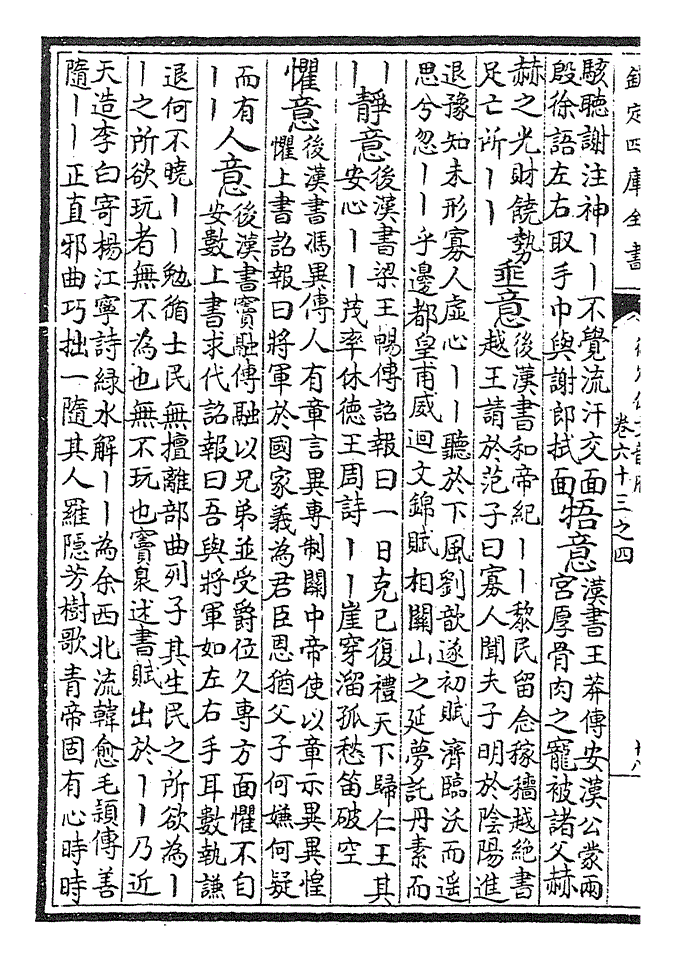 欽定四庫全書
卷六十三之四
駭聽謝注神丨丨不覺流汗交面
殷徐語左右取手巾與謝郎拭面
牾意
漢書王莽傳安漢公蒙兩
宮厚骨肉之寵被諸父赫
赫之光財饒勢
足亡所丨丨
垂意
後漢書和帝紀丨丨黎民留念稼穡越絕書
越王請於范子曰寡人聞夫子明於陰陽進
退豫知未形寡人虛心丨丨聽於下風劉歆遂初賦濟臨沃而遥
思兮忽丨丨乎邊都皇甫威迴文錦賦相關山之延夢託丹素而
丨丨
靜意
後漢書梁王暢傳詔報曰一日克己復禮天下歸仁王其
安心丨丨茂率休德王周詩丨丨崖穿溜孤愁笛破空
懼意
後漢書馮異傳人有章言異專制關中帝使以章示異異惶
懼上書詔報曰將軍於國家義為君臣恩猶父子何嫌何疑
而有
丨丨
人意
後漢書竇融傳融以兄弟並受爵位久專方面懼不自
安數上書求代詔報曰吾與將軍如左右手耳數執謙
退何不曉丨丨勉循士民無擅離部曲列子其生民之所欲為丨
丨之所欲玩者無不為也無不玩也竇臮述書賦出於丨丨乃近
天造李白寄楊江寧詩緑水解丨丨為余西北流韓愈毛穎傳善
隨丨丨正直邪曲巧拙一隨其人羅隱芳樹歌青帝固有心時時